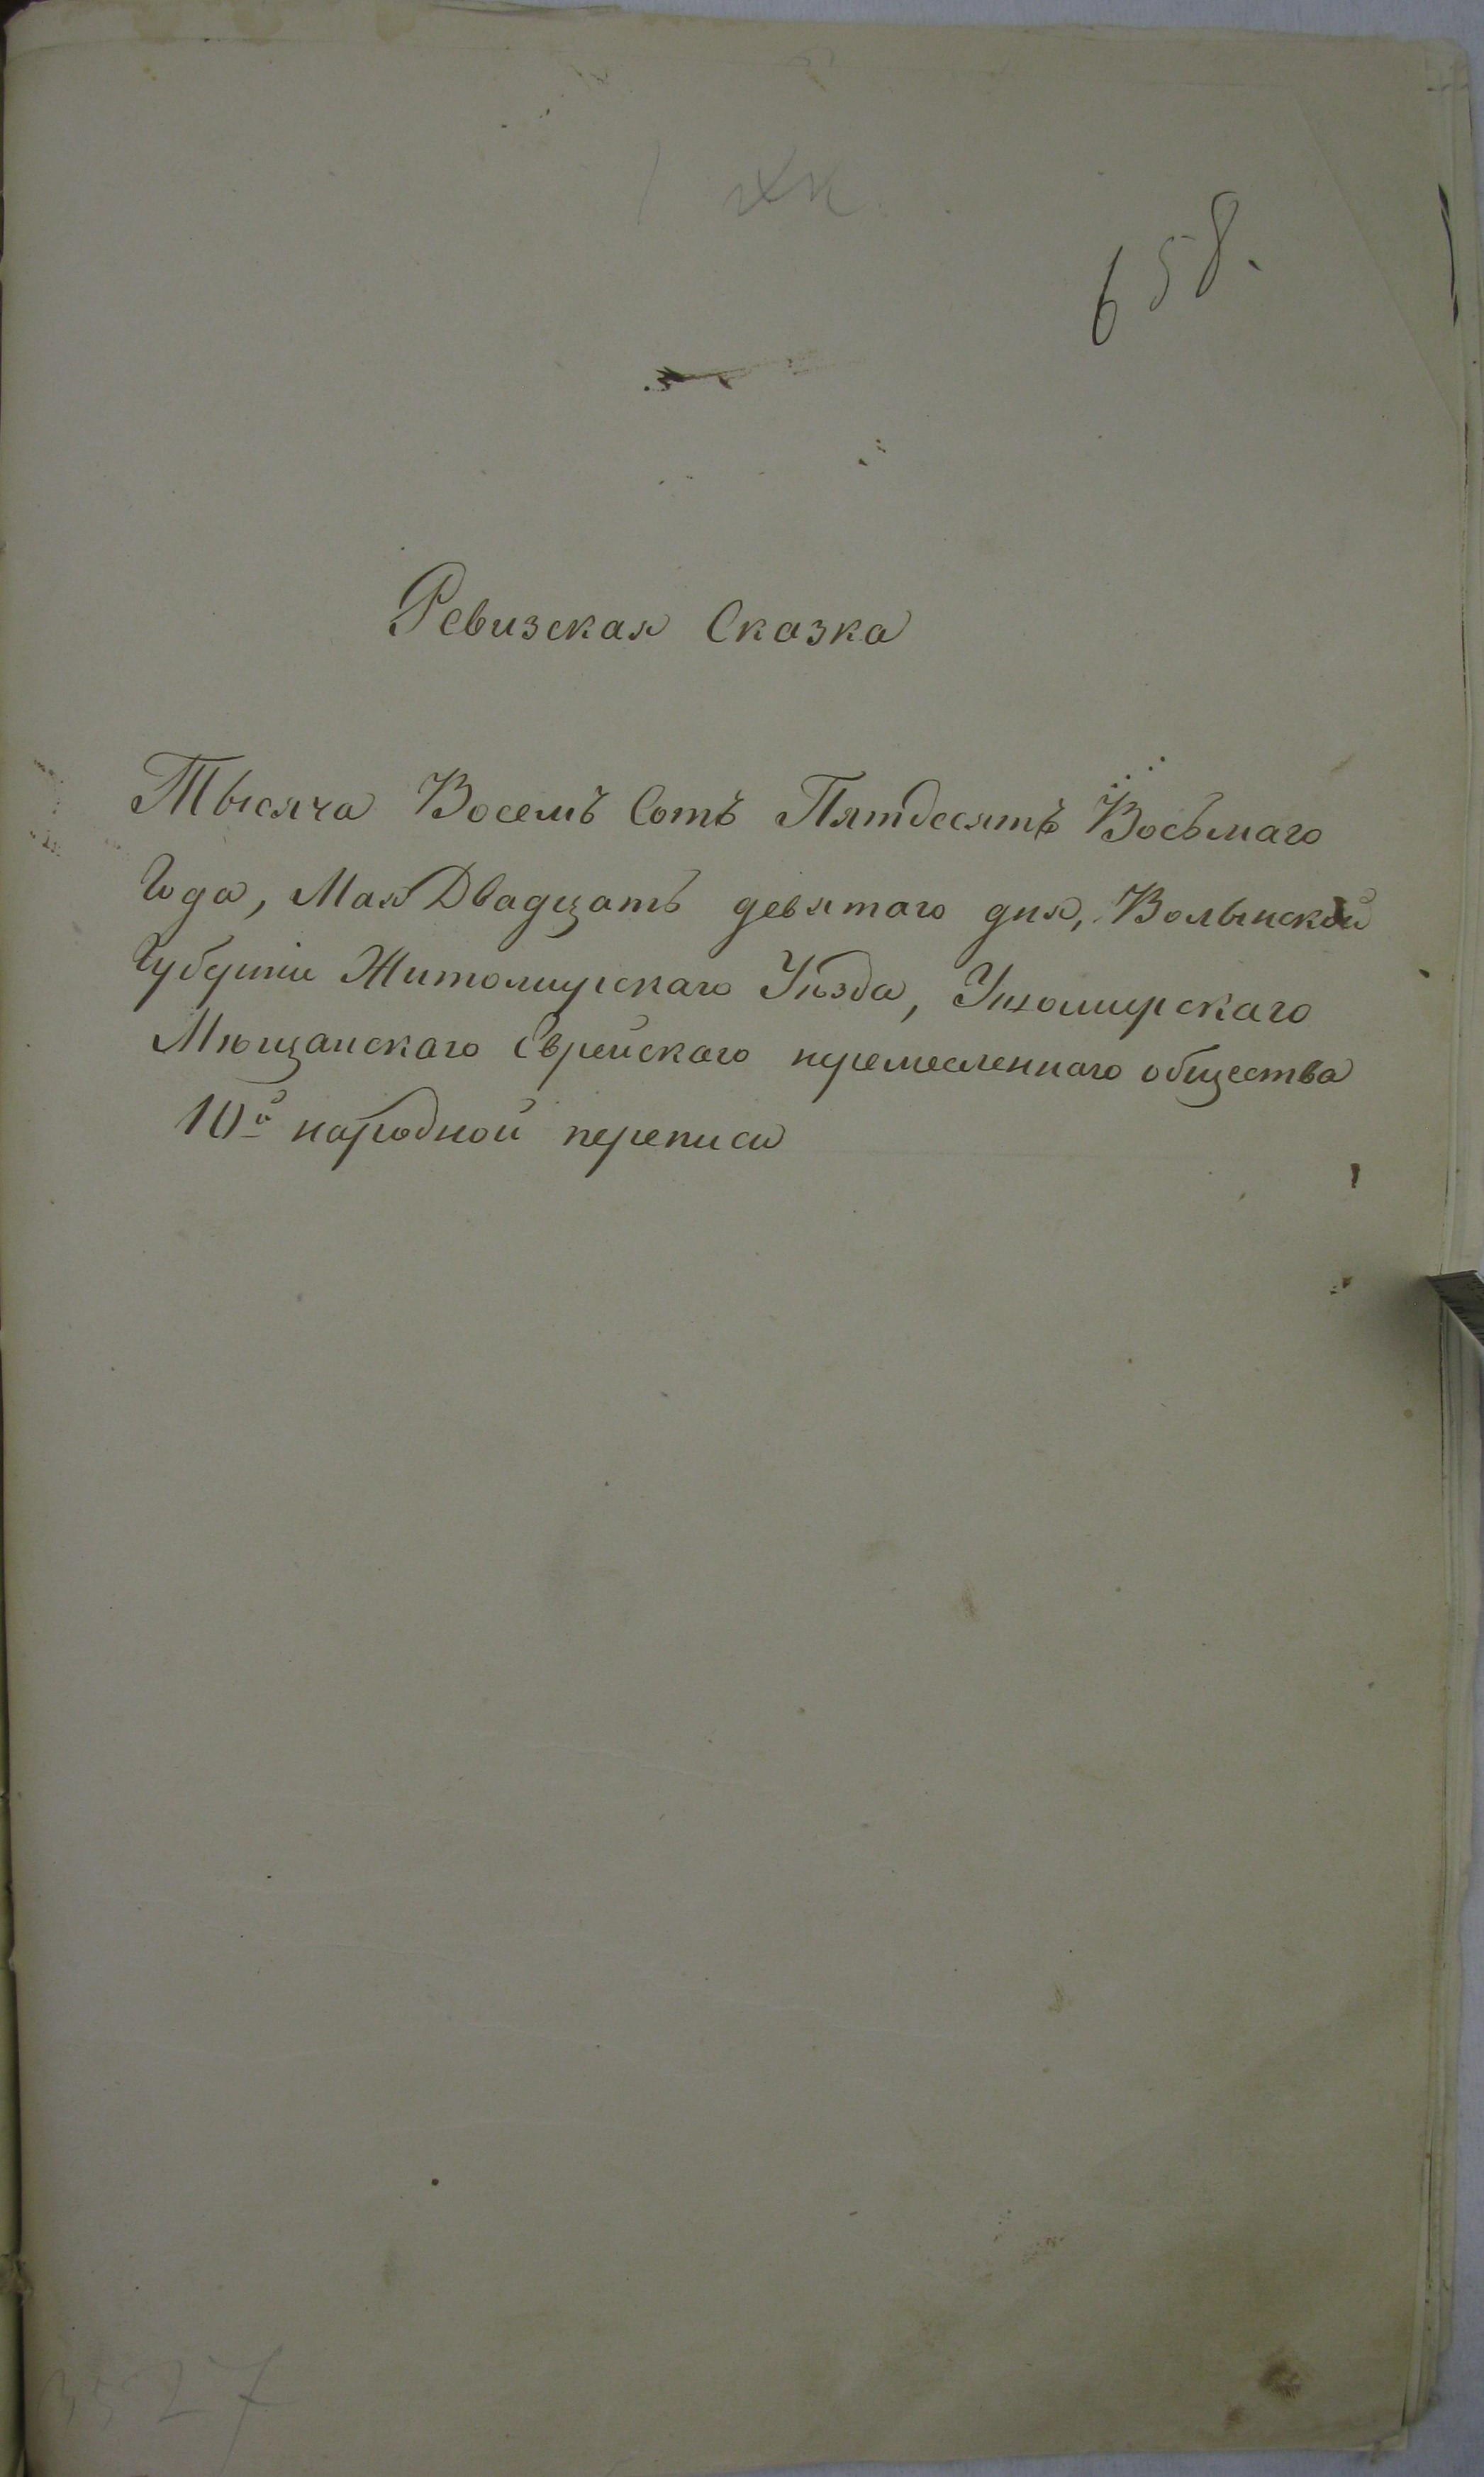 658.
Ревизская Сказка
Тысяча Восемъ Сотъ Пятдесятъ Восьмаго
Года, Мая Двадцать девятаго дня, Волынской
Губерніи Житомирскаго Уѣзда, Ушомирскаго
Мѣщанскаго Еврейскаго
общества
10й народной переписи
3527